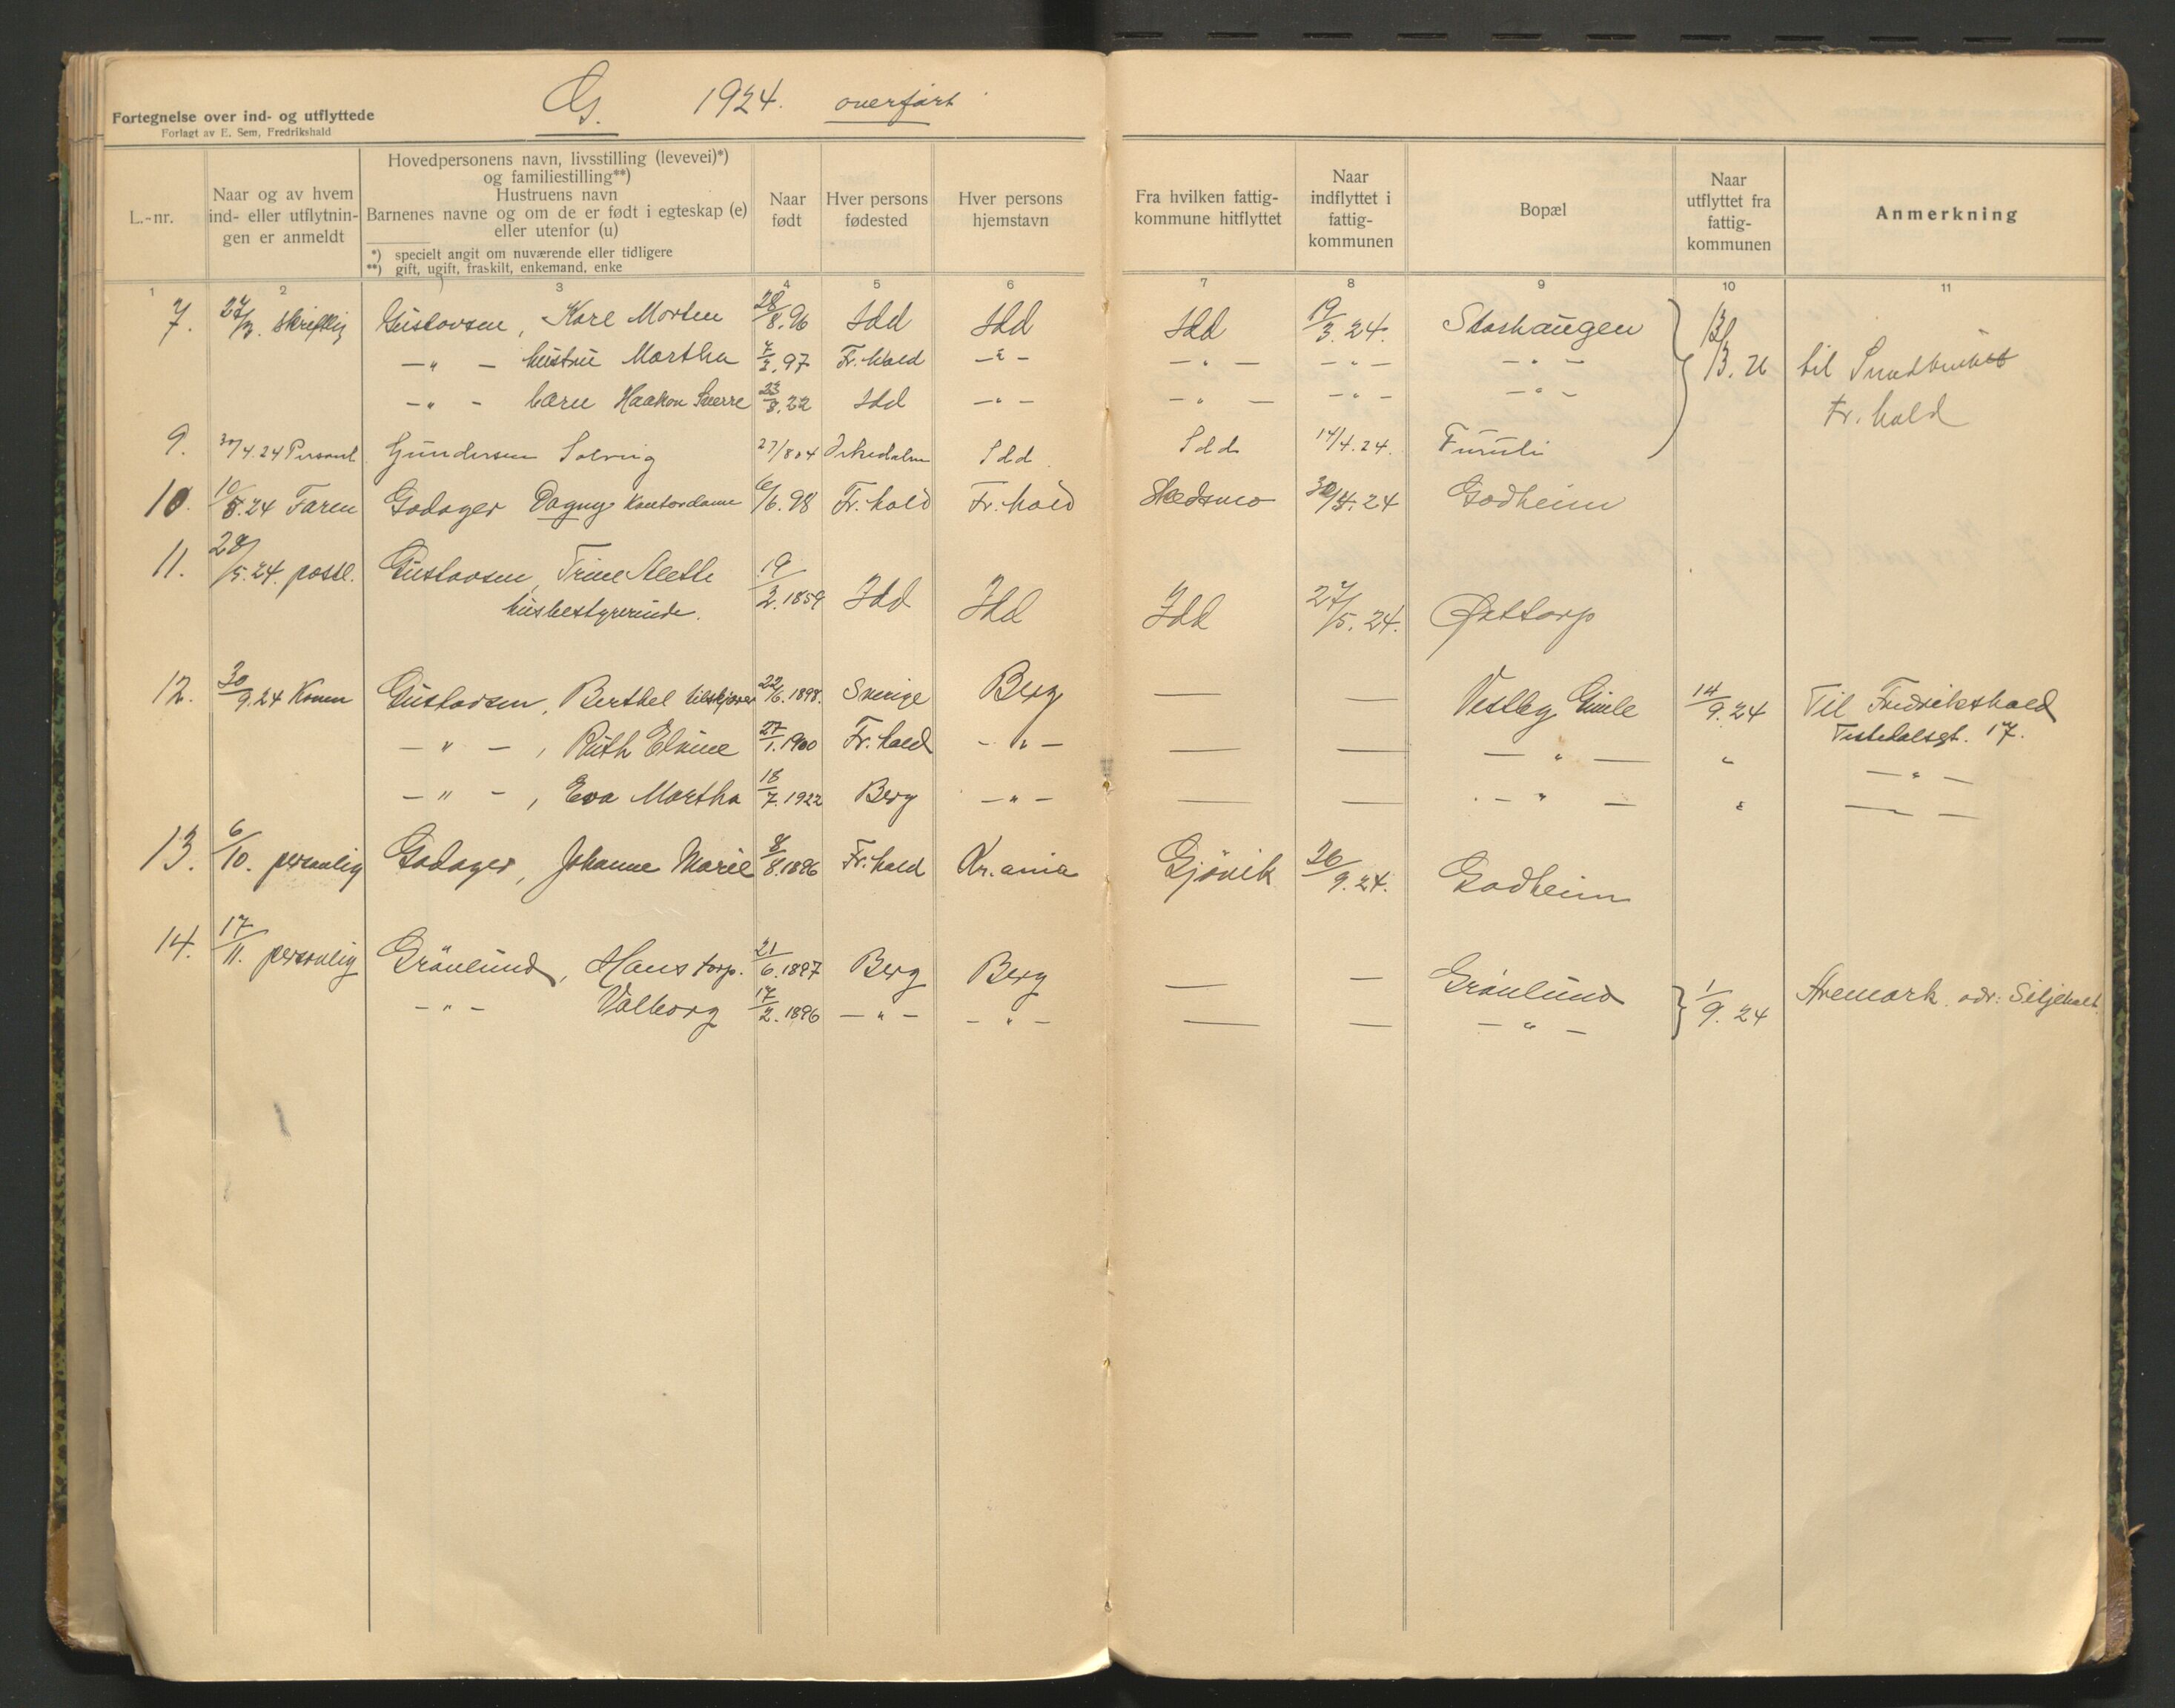 Fortegnelse over ind- og utflyttede
Forlagt av E. Sem, Fredrikshald
G. 1924. overført
L.-nr.
Naar og av hvem
ind- eller utflytnin-
gen er anmeldt
Hovedpersonens navn, livsstilling (levevei)*)
og familiestilling**)
Hustruens navn
Barnenes navne og om de er født i egteskap (e)
eller utenfor (u)
*) specielt angit om nuværende eller tidligere
**) gift, ugift, fraskilt, enkemand, enke
Naar
født
Hver persons
fødested
Hver persons
hjemstavn
Fra hvilken fattig-
kommune hitflyttet
Naar
indflyttet i
fattig-
kommunen
Bopæl
Naar
utflyttet fra
fattig-
kommunen
Anmerkning
1 2 3 4 5 6 7 8 9 10 11
7. 27/3. skriftlig Gustavsen, Kare Morten 28/8.96 Idd Idd Idd 19/3.24. Stashaugen } 13/3.26 til
— " — hustru Martha 7/2.97 Fr.hald — " — — " — — " — — " —
— " — barn Haakon Sverre 23/8.22 Idd — " — — " — — " — — " — Fr. hald
9. 30/4.24 Personl. Gundersen Solveig 27/804 Idd Idd 14/4.24. Furuli
10. 10/5.24 Faren Godager Dagny Kontordame 6/6.98 Fr.hald Fr.hald Skedsmo 30/4.24 Godheim
11. 28/5.24. postl. Gustavsen, Trine Alette 19/2.1859 Idd Idd Idd 27/5.24. Østtorp
husbestyrerinde.
12. 30/9.24 Konen Gustavsen, Berthel tilskjærer 22/6.1898. Sverige Berg — — Vestby Gimle 14/9.24 Til Fredrikshald
Tistedalsgt. 17.
— " — , Ruth Elvine 27/1.1900 Fr.hald — " — — — — " — " — " —
— " — , Eva Martha 18/7.1922 Berg — " — — — — " — " — —
13. 6/10. personlig Godager, Johanne Marie 8/8.1896 Fr.hald Kr.ania Gjövik 26/9.24. Godheim
14. 17/11. personlig Grönlund, Hans torp. 21/6.1897 Berg Berg — — Grönlund } 1/9.24 Aremark. adr: Siljeholt.
— " — Valborg 17/2.1896 — " — — " — — — — " —